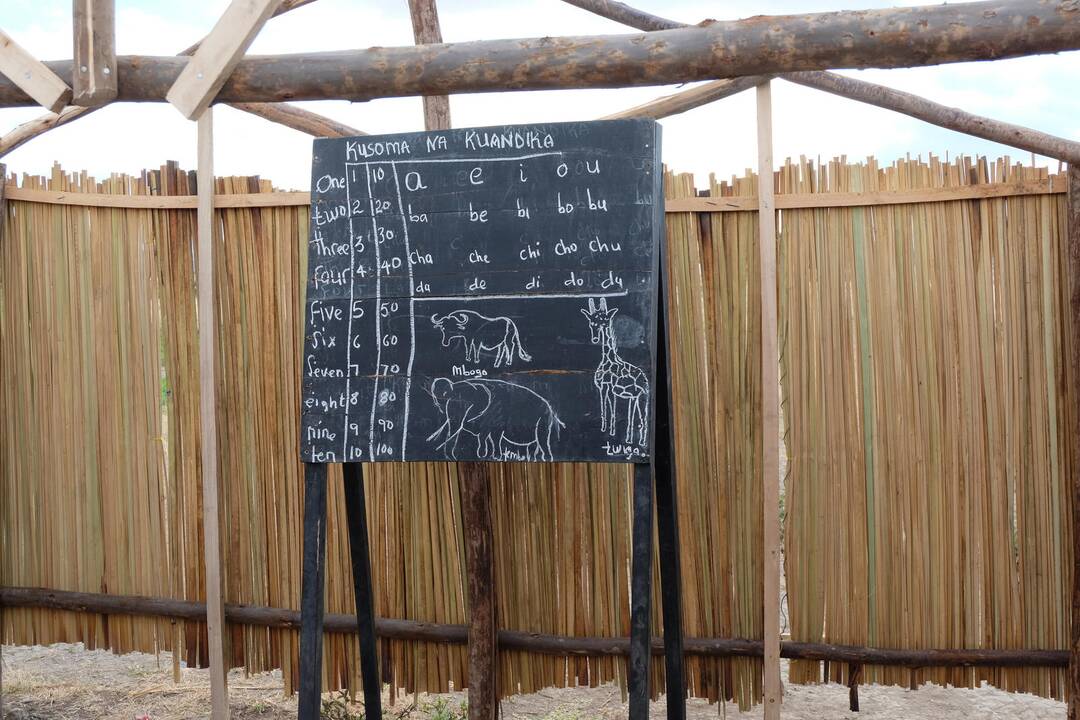 KUSOMA NA KUANDIKA
One 1 10 a e i o u
two 2 20 ba be bi bo bu
three 3 30
four 4 40 cha che chi cho chu
da de di do du
five 5 50
six 6 60
Seven 7 70 Mbogo
eight 8 80
nine 9 90
ten 10 100 tembo twiga